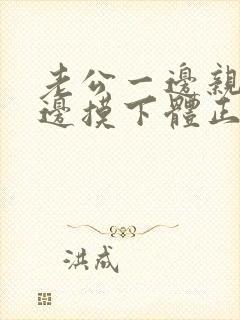 老公一邊親
邊摸下體正
洪成